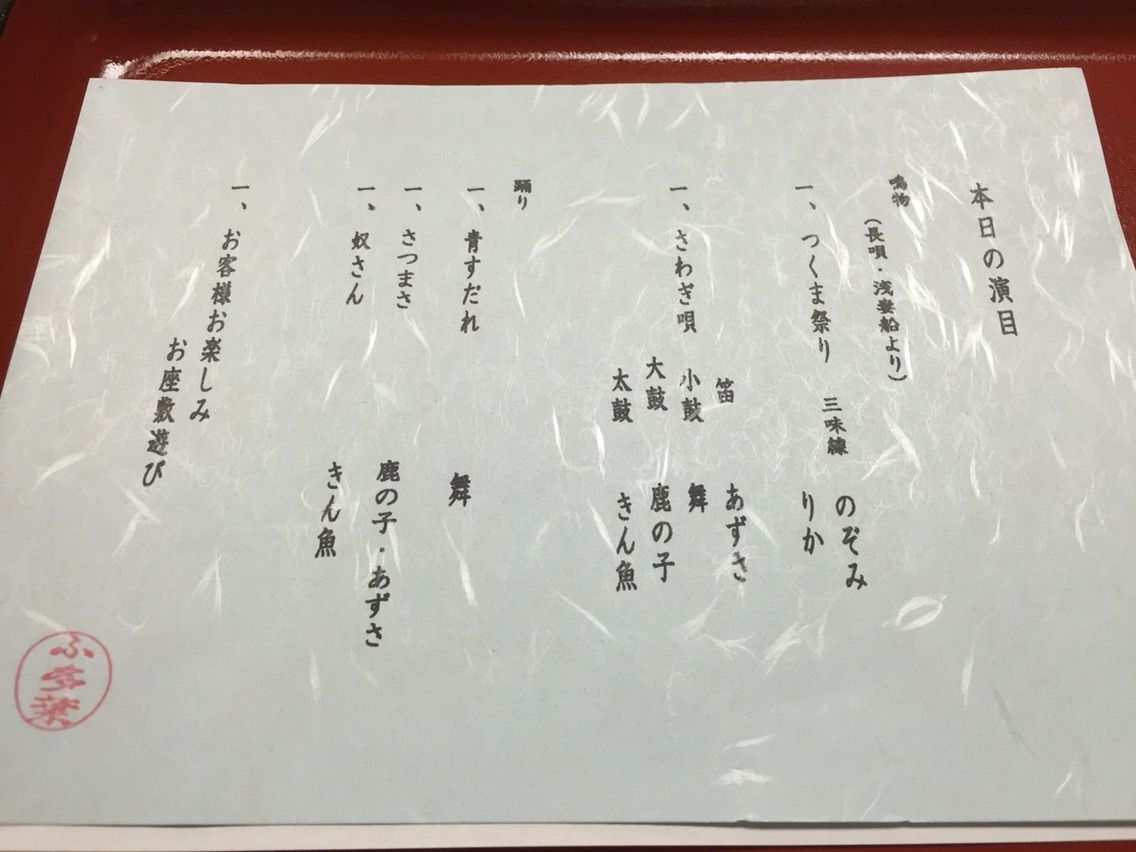 本日の演目
鳴物
(長唄・浅妻船より)
一、つくま祭り 三味線 のぞみ
りか
笛 あずさ
一、さわぎ唄 小鼓 舞
大鼓 鹿の子
太鼓 きん魚
踊り
一、青すだれ 舞
一、さつまさ 鹿の子・あずさ
一、奴さん きん魚
一、お客様お楽しみ
お座敷遊び
ふ多葉